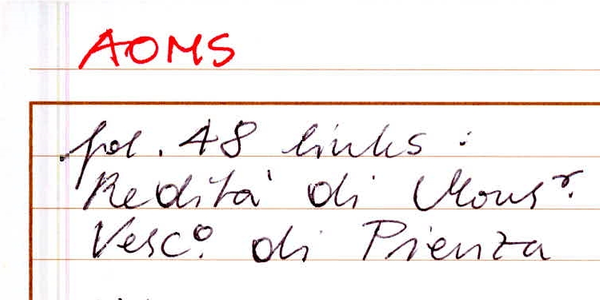 AOMS
fol. 48 links :
Redità di Mons.r
Vesc.o di Pienza